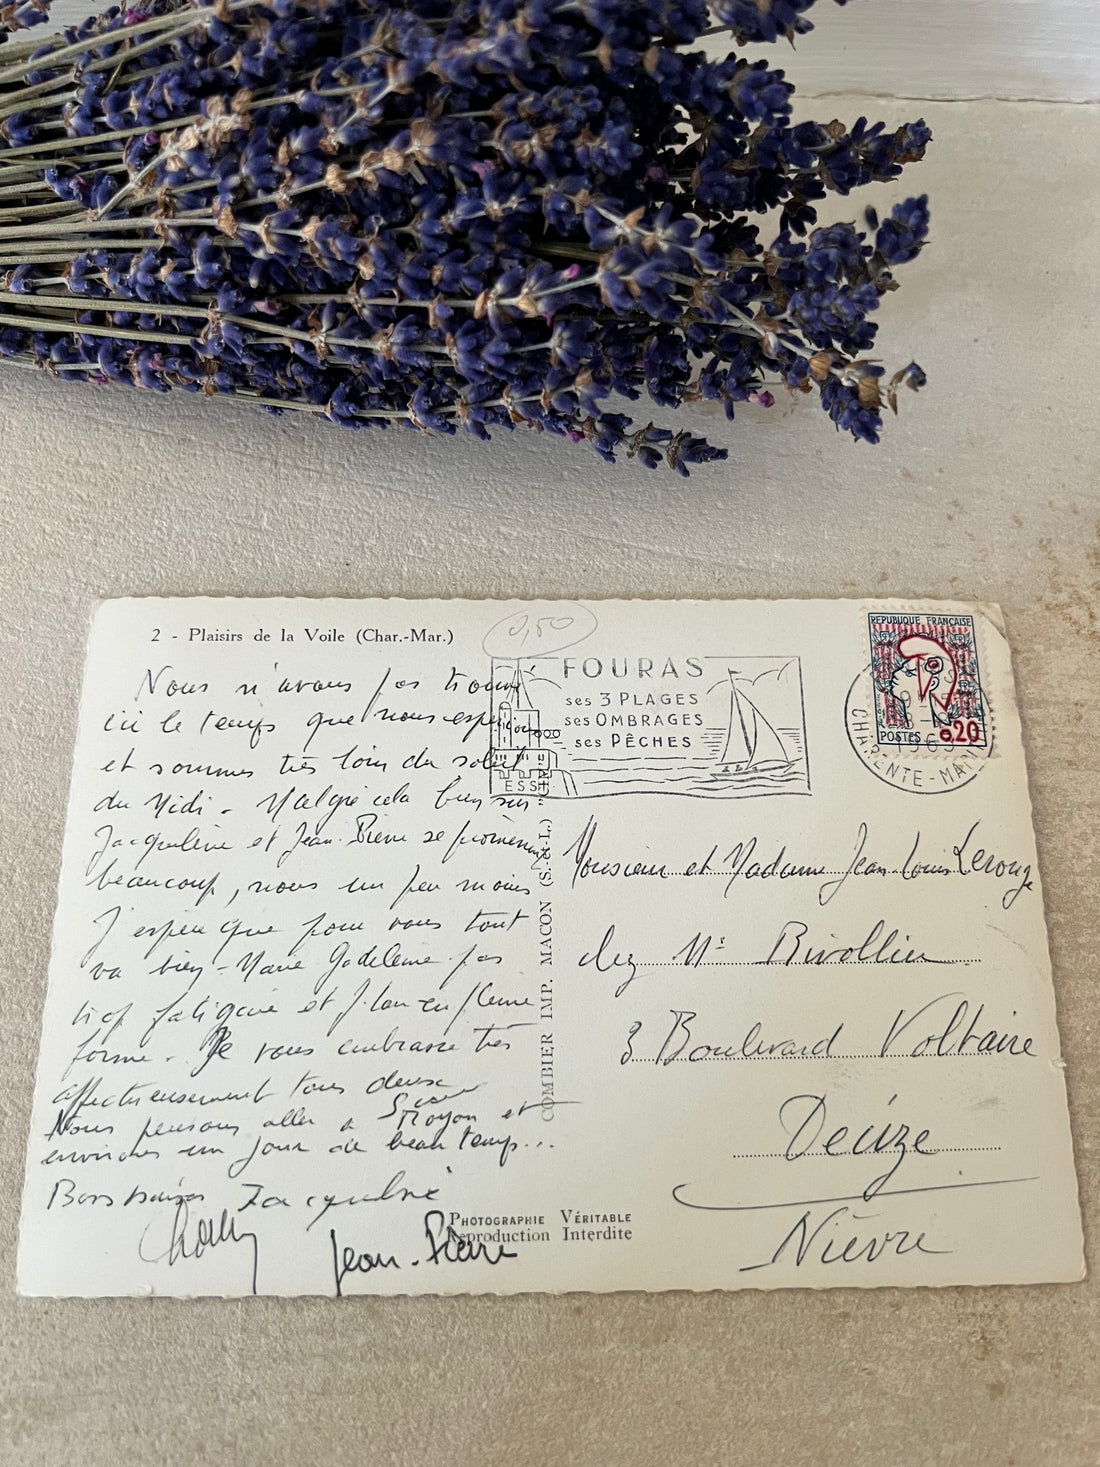 2 - Plaisirs de la Voile (Char.-Mar.)
0,50
Nous n'avons pas trouvé
ici le temps que nous espérions
et sommes très loin du soleil
du Midi - Malgré cela bien sûr
Jacqueline et Jean-Pierre se promènent
beaucoup, nous un peu moins
J'espère que pour vous tout
va bien - Marie Madeleine pas
trop fatiguée et J. Lou en pleine
forme - Je vous embrasse très
affectueusement tous deux
Nous pensons aller à Royan et
environs un jour de beau temps...
Bons baisers Jacqueline
Jean-Pierre
FOURAS
ses 3 PLAGES
ses OMBRAGES
ses PÊCHES
REPUBLIQUE FRANÇAISE
POSTES 0,20
CHARENTE-MAR
COMBIER IMP. MACON (S.-et-L.)
Monsieur et Madame Jean-Louis Lerouge
chez Mr Rivollier
3 Boulevard Voltaire
Decize
Nièvre
PHOTOGRAPHIE VÉRITABLE
Reproduction Interdite